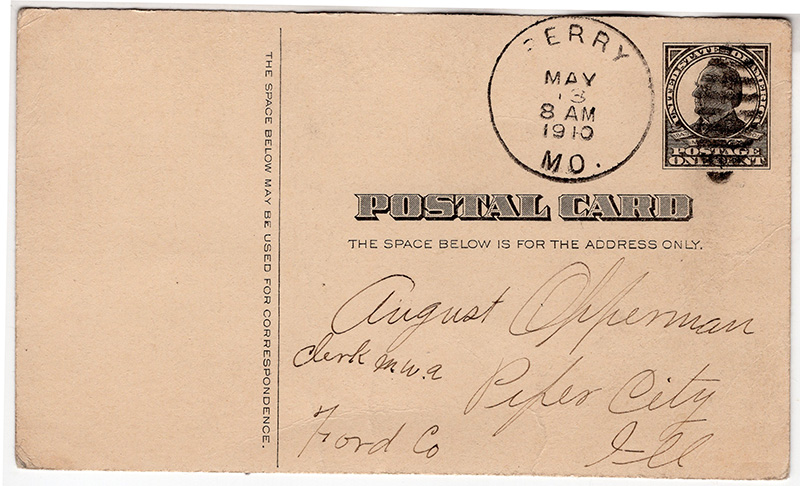 PERRY
MAY
13
8 AM
1910
MO.
UNITED STATES OF AMERICA
POSTAGE
ONE CENT
POSTAL CARD
THE SPACE BELOW IS FOR THE ADDRESS ONLY.
THE SPACE BELOW MAY BE USED FOR CORRESPONDENCE.
August Opperman
Clerk M.W.A
Piper City
Ford Co
Ill